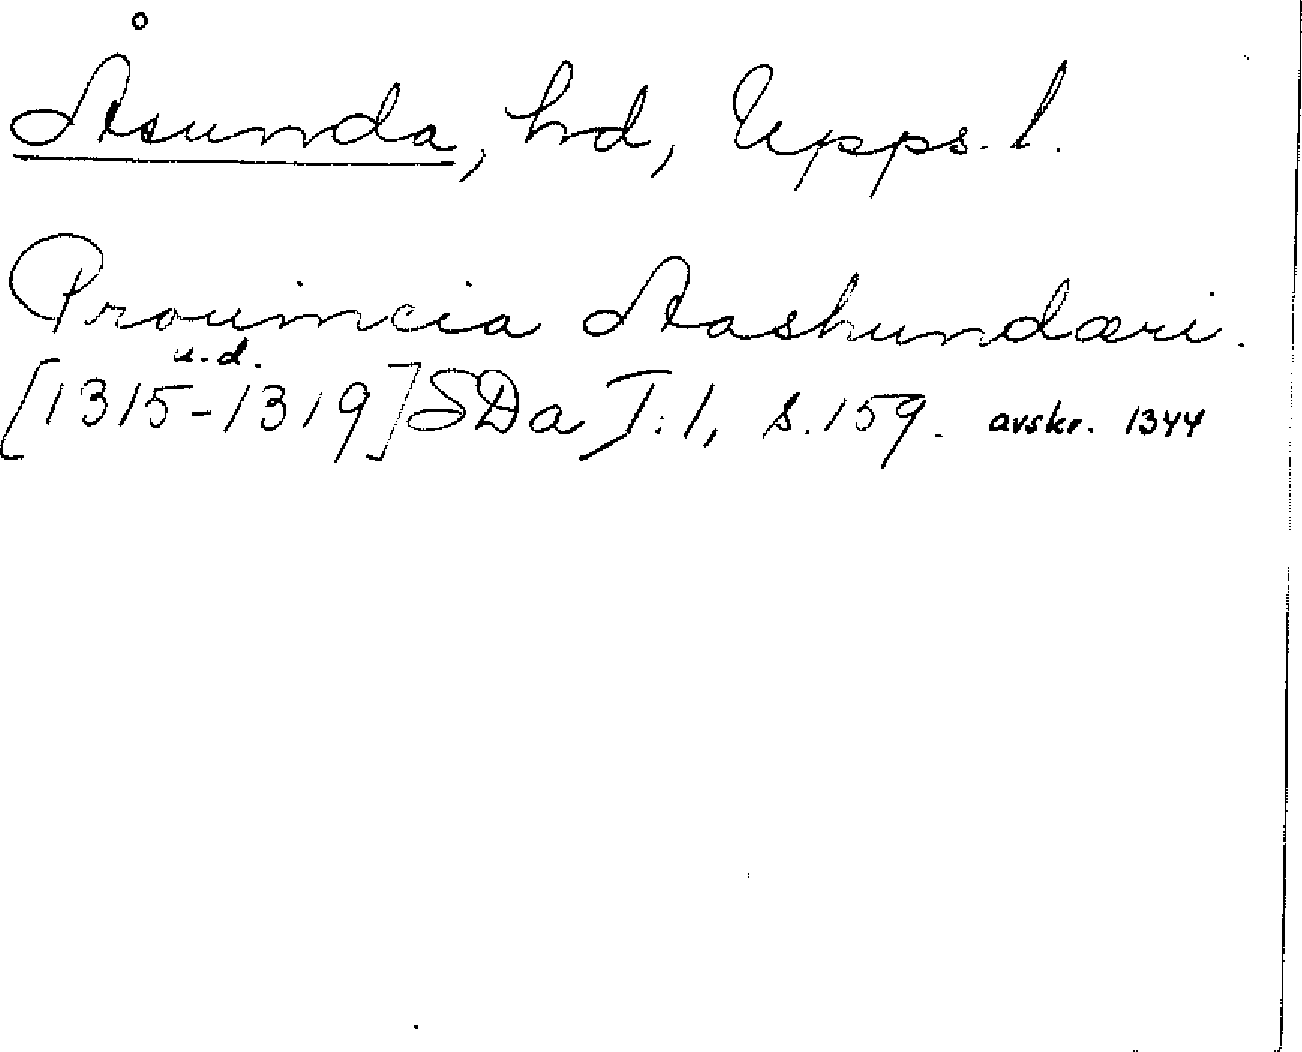 Åsunda, hd, Upps. l.
Prouincia Aashundæri.
u. d.
[1315-1319] SDa I:1, s. 159. avskr. 1344